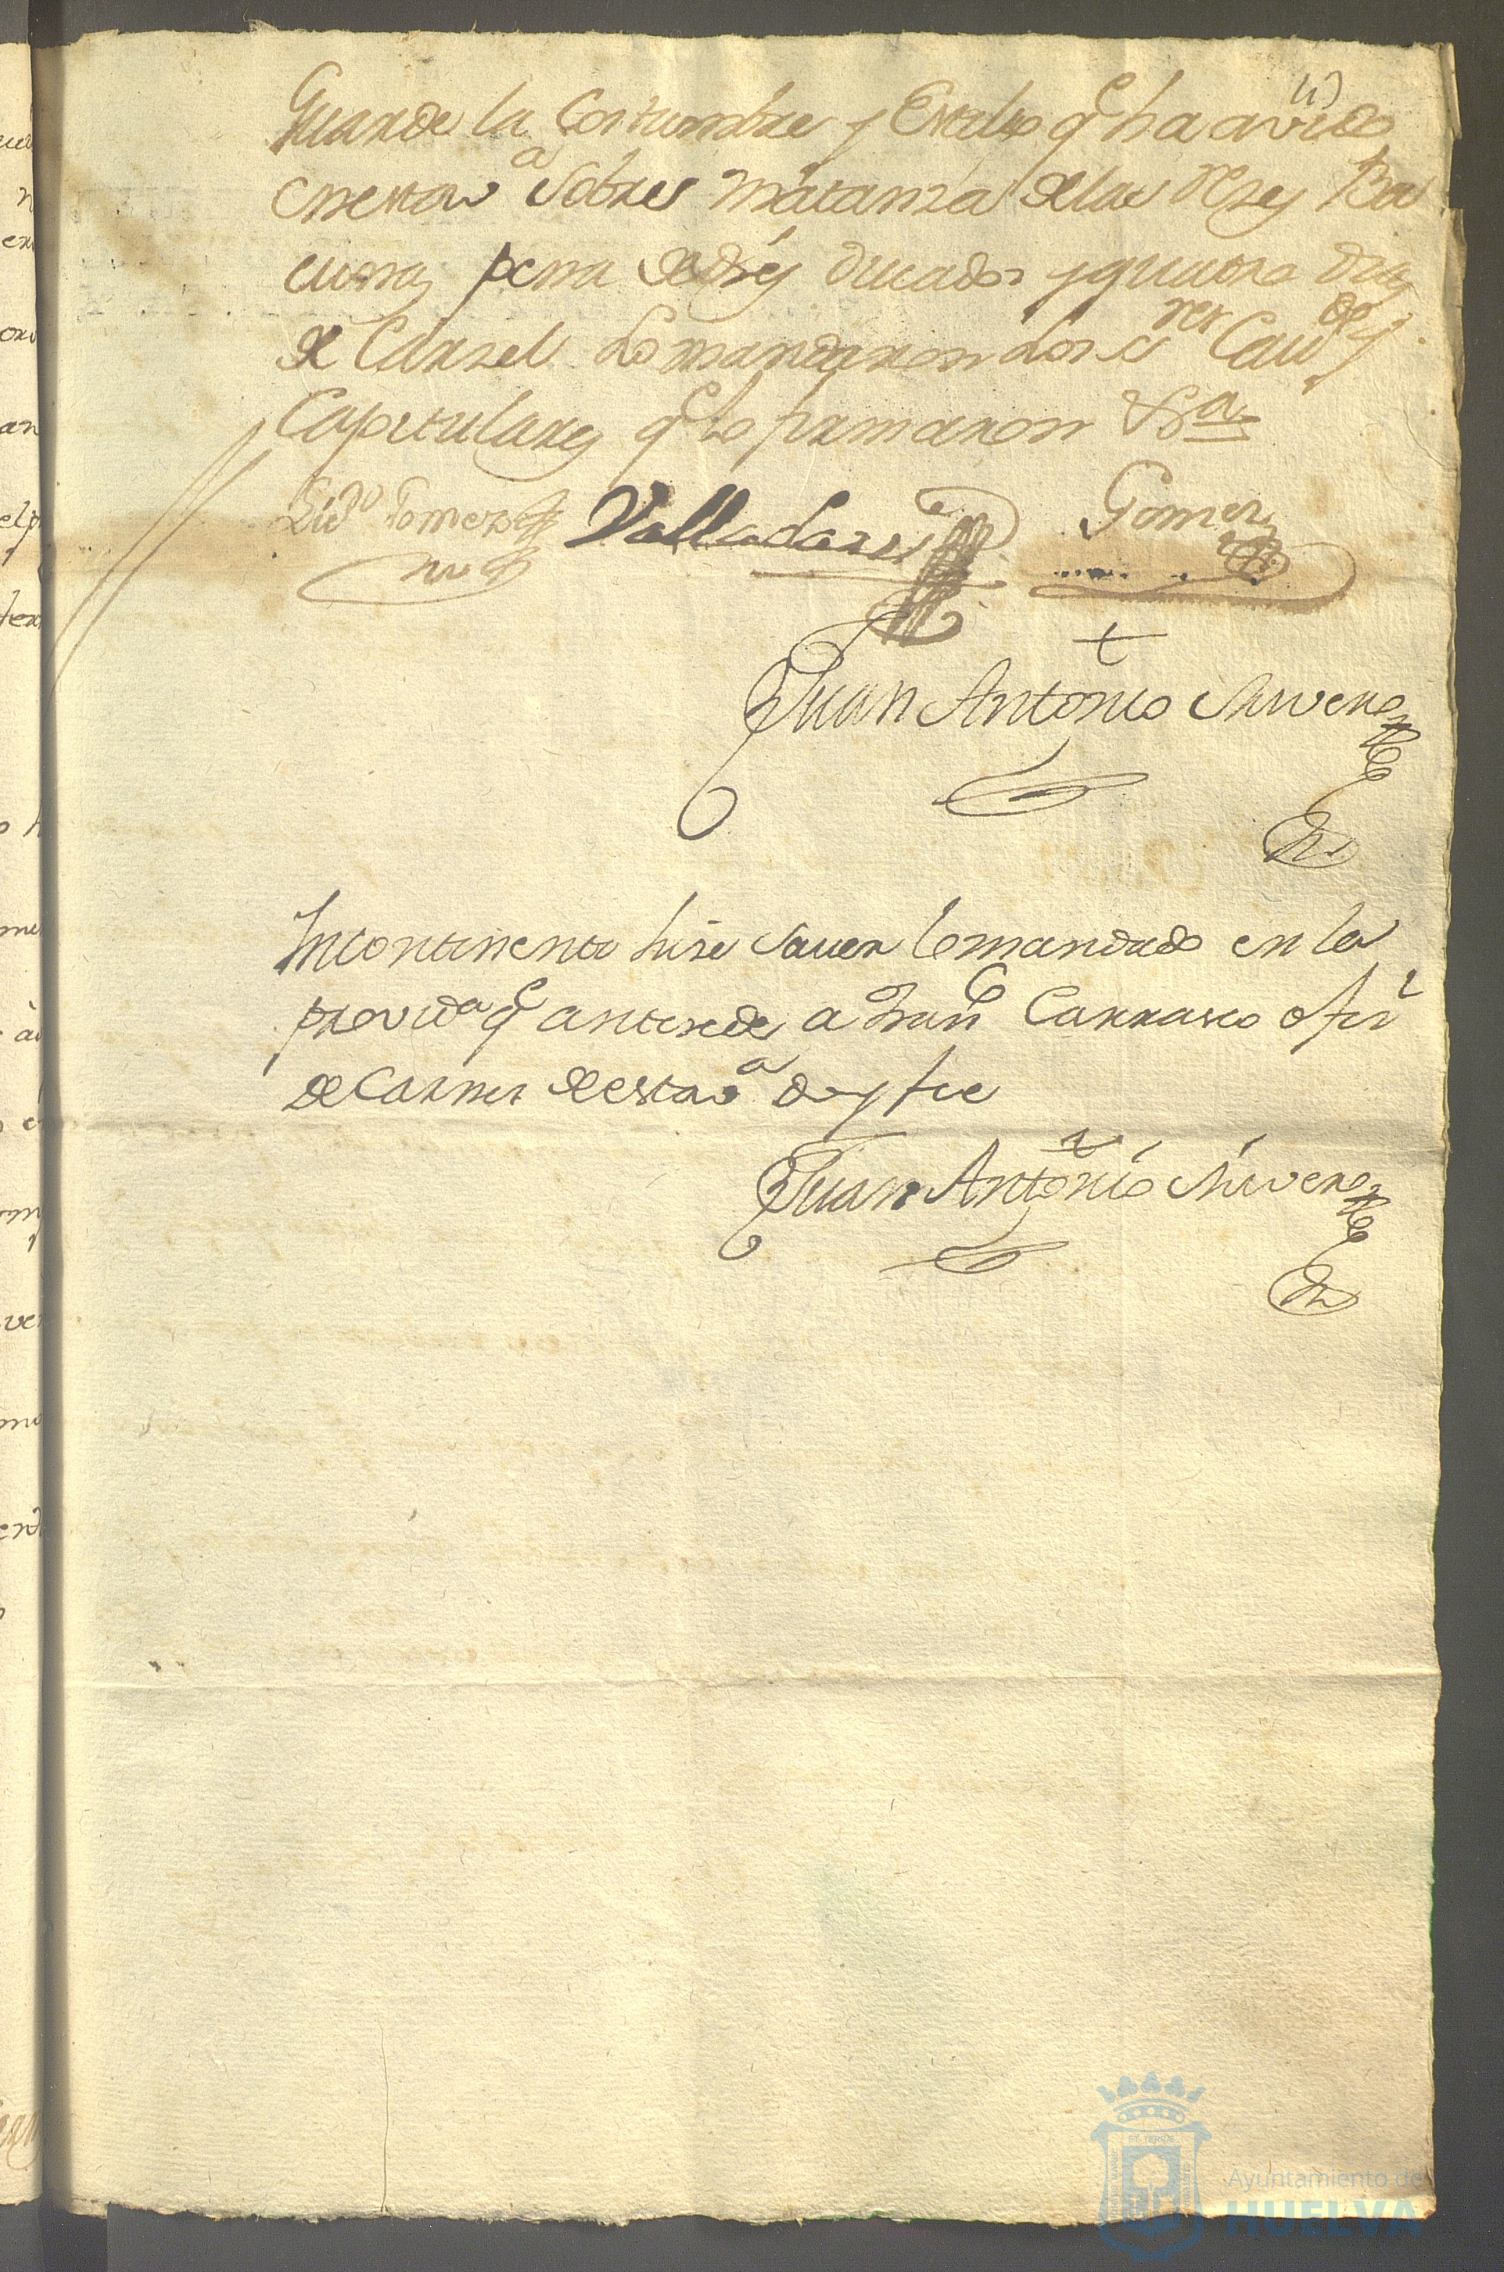 Guarde la Costumbre y Estilo q.e ha avido
en esta v.a sobre Matanza de las Reses Ba
cunas, pena de dies ducados y quatro dias
de Carzel Lo mandaron Los s.res Cav.do y
Capitulares q.e Lo firmaron
Lic.do Gomez Valladares Gomez
Juan Antonio Rivero
Incontinenti hise saver lo mandado en la
provid.a q.e antesede a Fran.co Carrasco
de Carnes de esta v.a doy fee
Juan Antonio Rivero
Ayuntamiento de
HUELVA